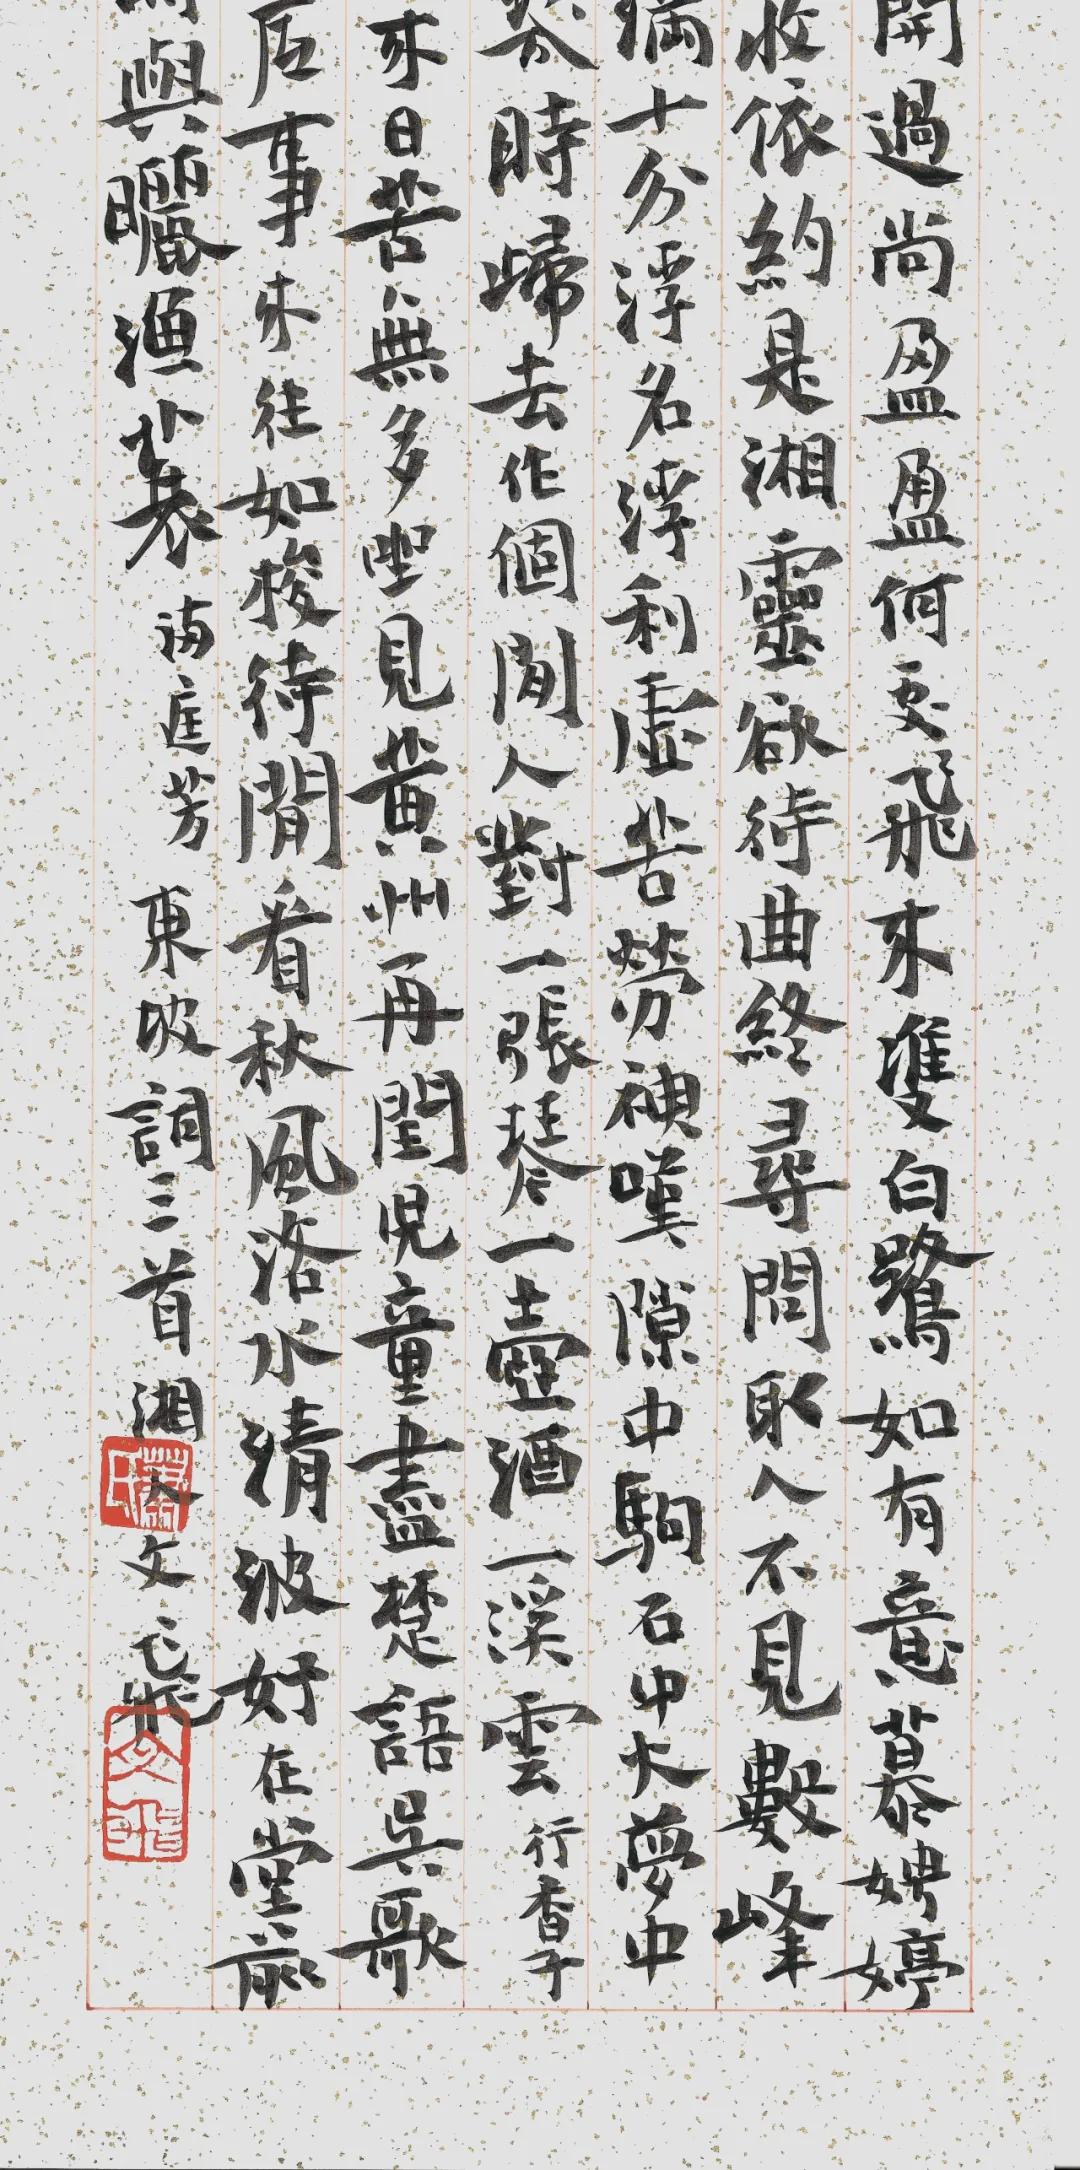 開過尚盈盈何處飛來雙白鷺如有意慕娉婷
收依約是湘靈欲待曲終尋問取人不見數峰
滿十分浮名浮利虛苦勞神嘆隙中駒石中火夢中
時歸去作個閒人對一張琴一壺酒一溪雲 行香子
來日苦無多坐見黃州再閏兒童盡楚語吳歌
底事來往如梭待閒看秋風洛水清波好在堂前
與曬漁蓑 滿庭芳 東坡詞三首 湘人文飛